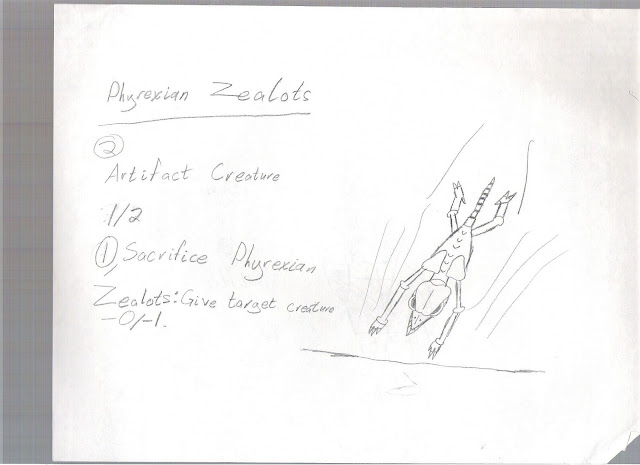 Phyrexian Zealots
2
Artifact Creature
1/2
1, Sacrifice Phyrexian
Zealots: Give target creature
-0/-1.